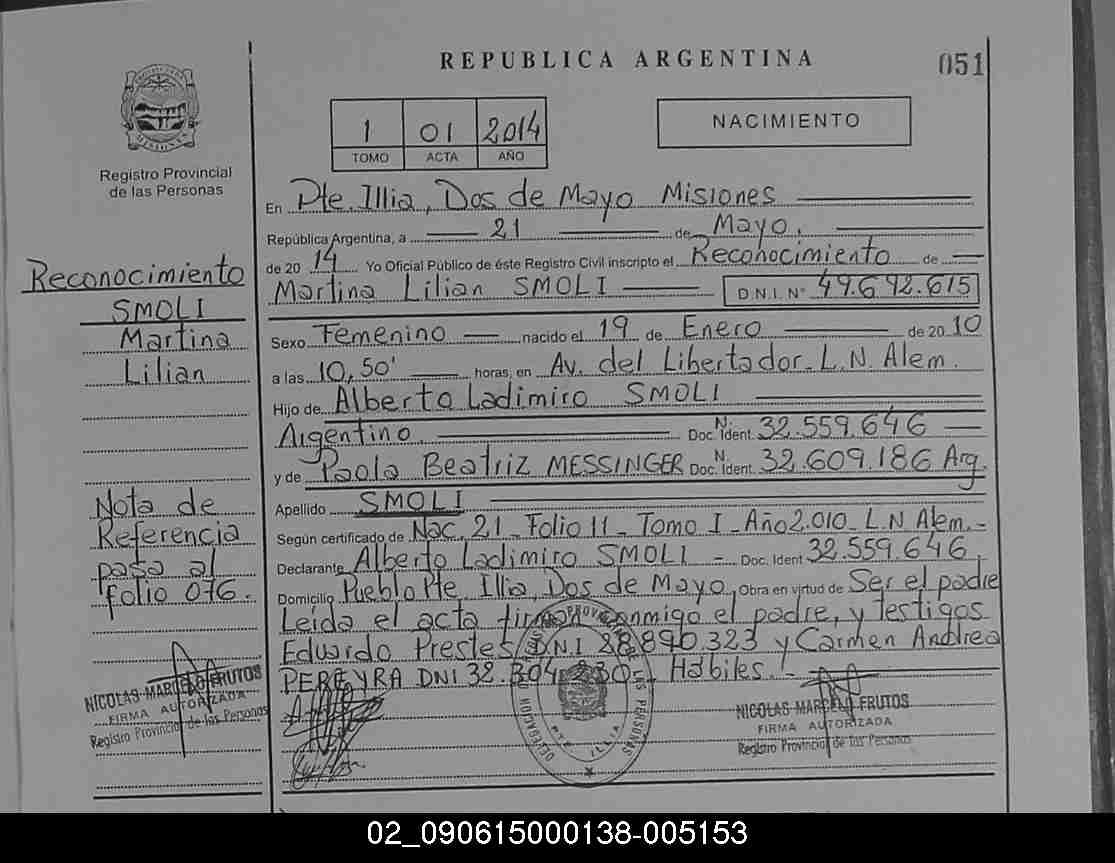 REPUBLICA ARGENTINA
051
MISIONES
Registro Provincial
de las Personas
1 01 2014
TOMO ACTA AÑO
NACIMIENTO
En Pte. Illia, Dos de Mayo Misiones
República Argentina, a 21 de Mayo.
de 20 14 Yo Oficial Público de éste Registro Civil inscripto el Reconocimiento de
Martina Lilian SMOLI D.N.I. N° 49.692.615
Sexo Femenino nacido el 19 de Enero de 20 10
a las 10,50' horas, en Av. del Libertador. L.N. Alem.
Hijo de Alberto Ladimiro SMOLI
Argentino. Doc. N. Ident. 32.559.646
y de Paola Beatriz MESSINGER Doc. N. Ident. 32.609.186 Arg.
Apellido SMOLI
Según certificado de Nac. 21 - Folio 11 - Tomo I - Año 2.010 - L.N. Alem. -
Declarante Alberto Ladimiro SMOLI - Doc. Ident 32.559.646.
Domicilio Pueblo Pte. Illia, Dos de Mayo, Obra en virtud de Ser el padre
Leída el acta firman conmigo el padre, y testigos
Eduardo Prestes D.N.I 28.890.323 y Carmen Andrea
PEREYRA DNI 32.304.230 - Hábiles. -
Reconocimiento
SMOLI
Martina
Lilian
Nota de
Referencia
pasa al
folio 076.
NICOLAS MARCELO FRUTOS
FIRMA AUTORIZADA
Registro Provincial de las Personas
DELEGACION
PTE. ILLIA
NICOLAS MARCELO FRUTOS
FIRMA AUTORIZADA
Registro Provincial de las Personas
02_090615000138-005153